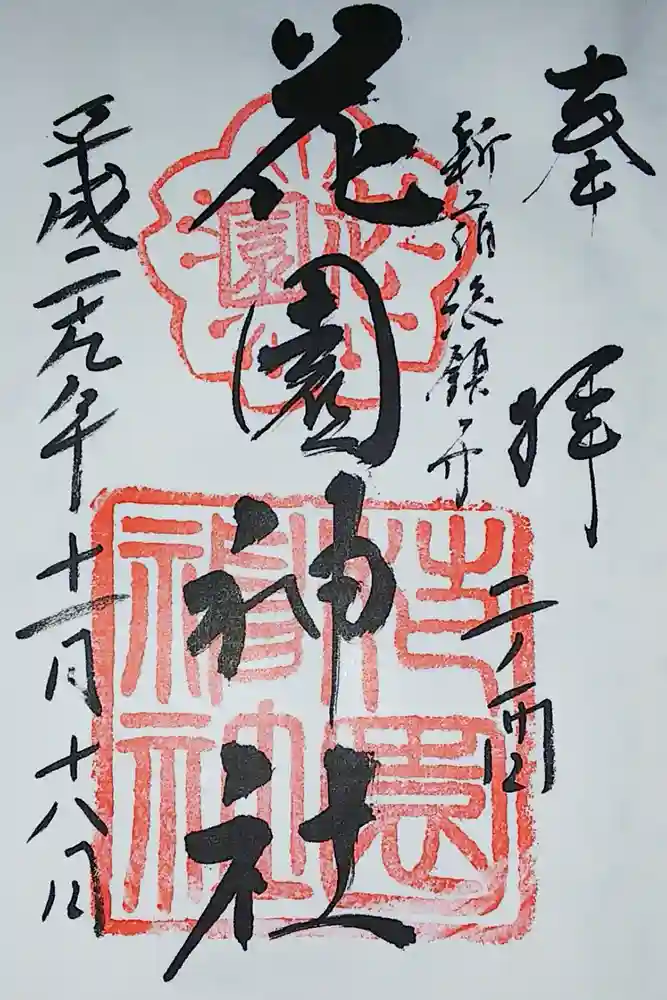 奉拝
二ノ酉
新宿総鎮守
花園神社
平成二十九年十一月十八日
花園
花園
神社